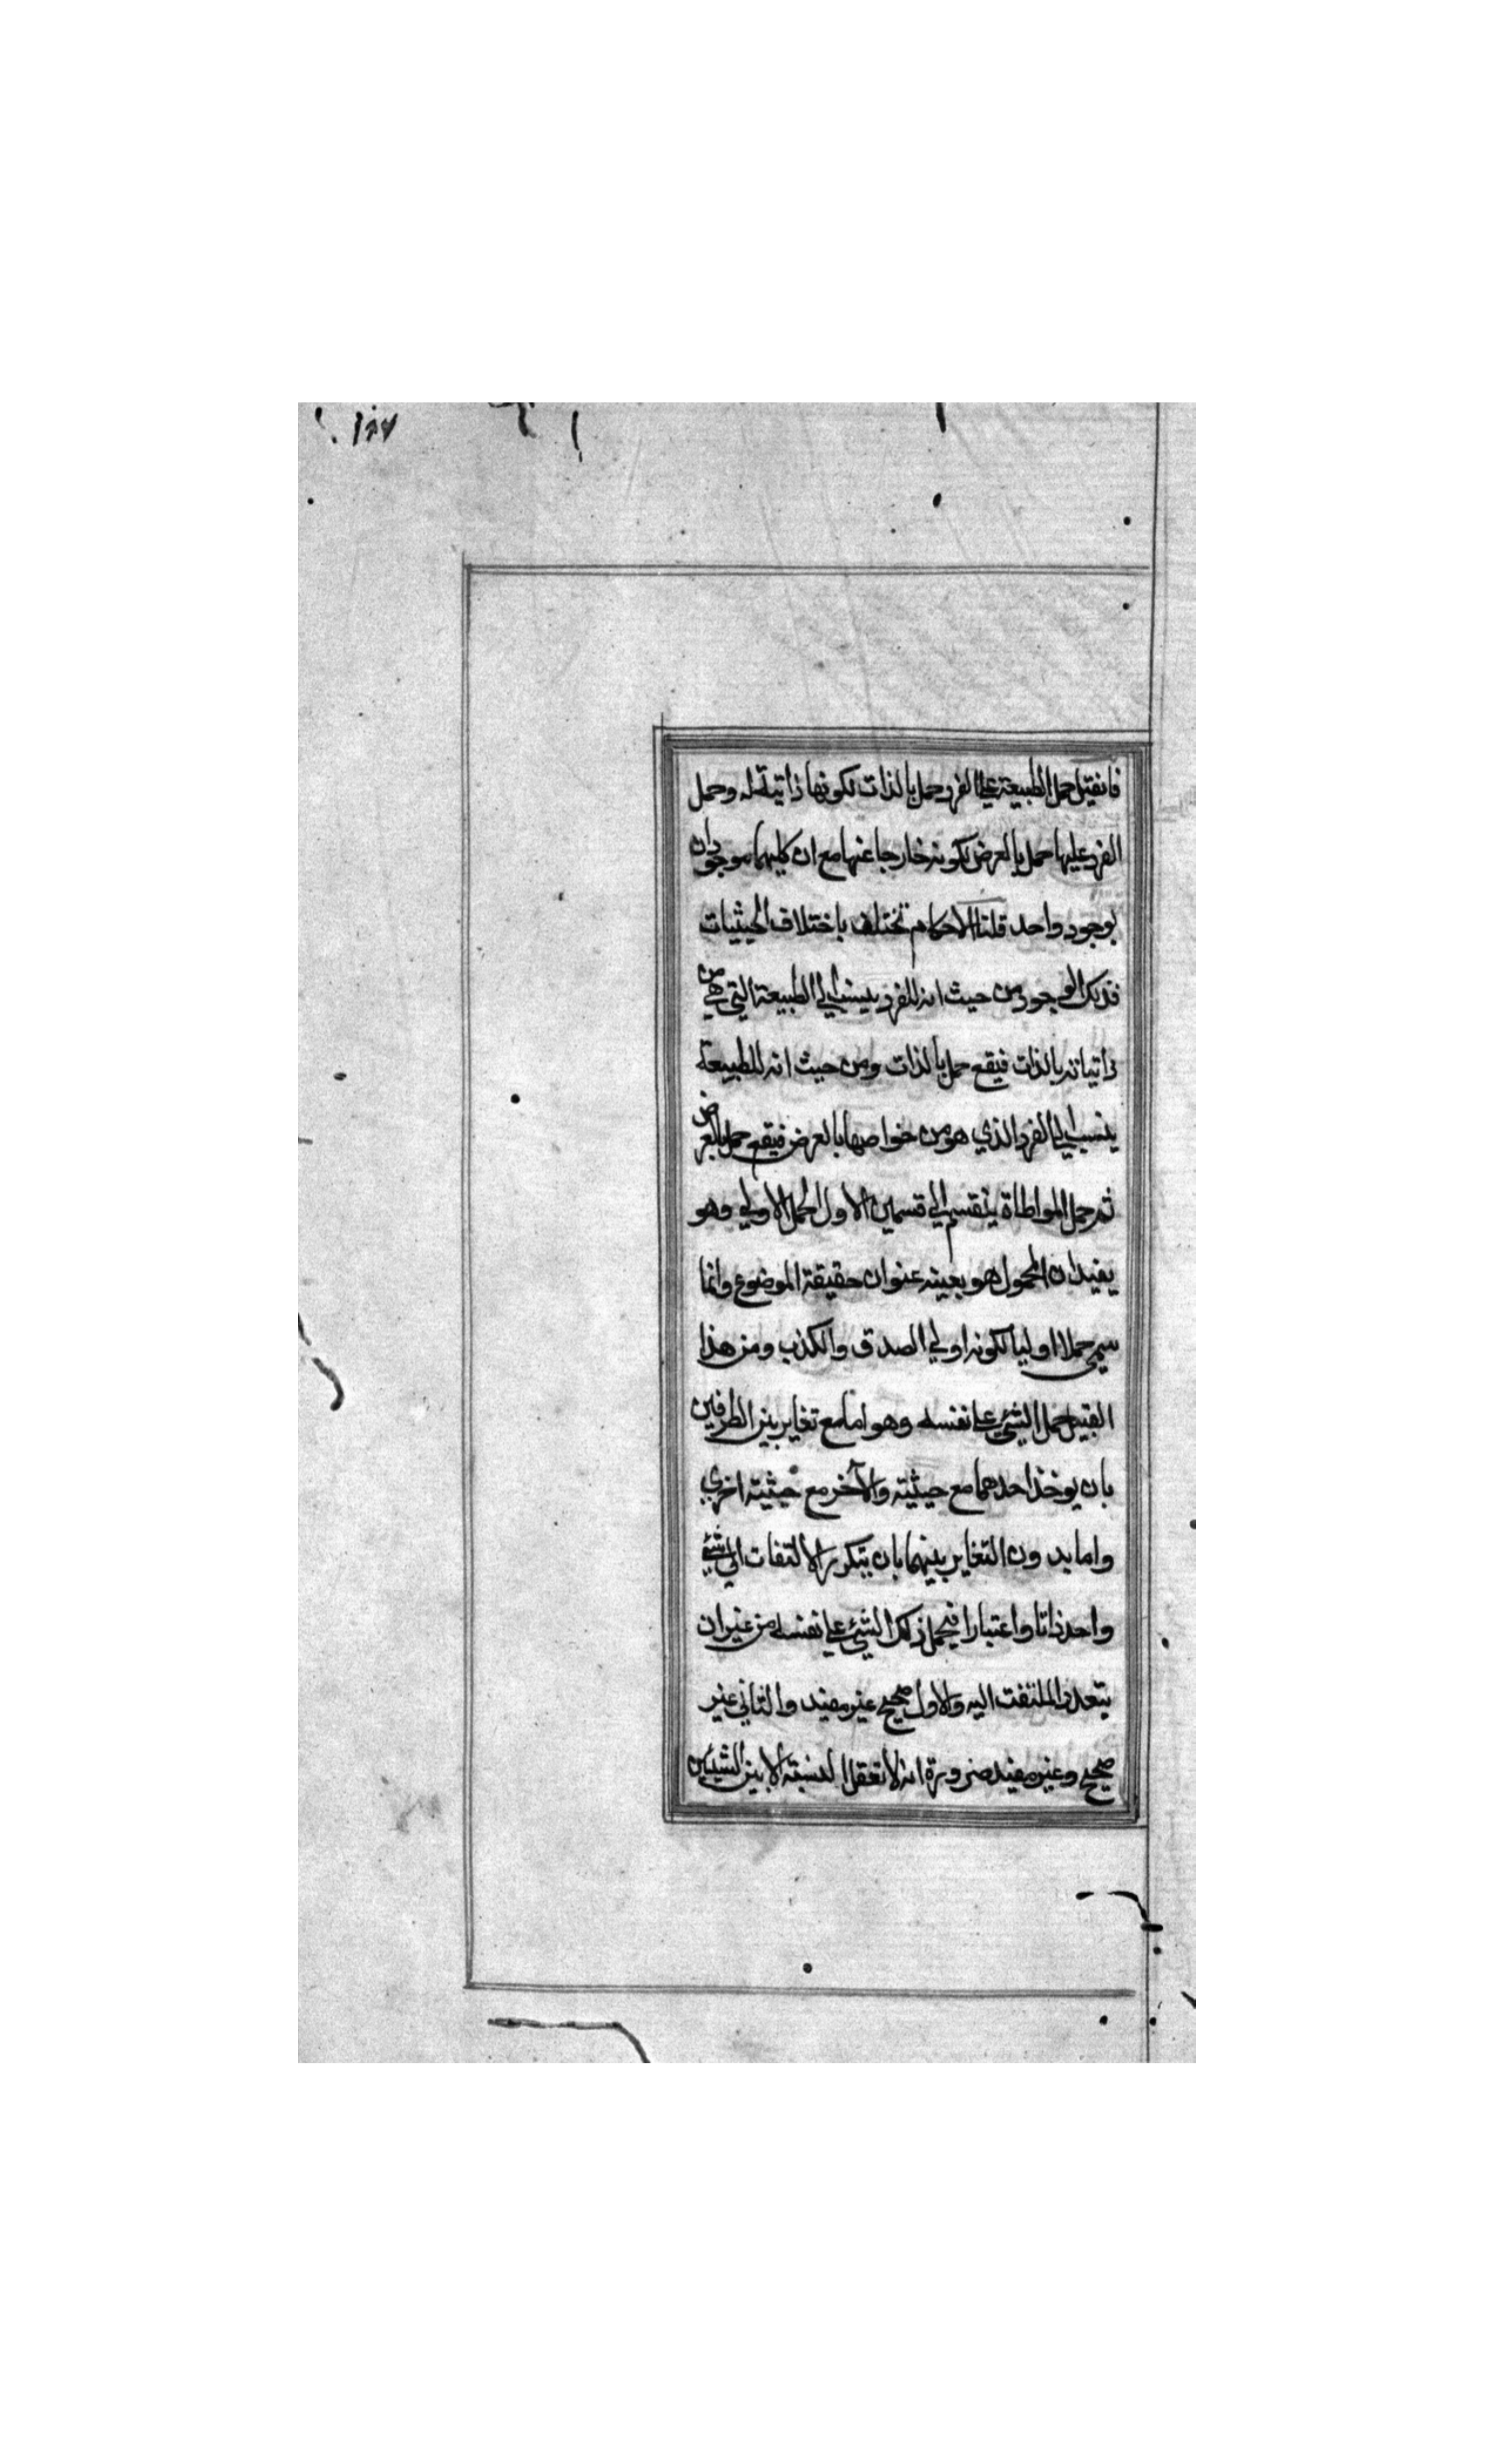 فانقيل حمل الطبيعة علي الفرد حمل بالذات لكونها ذاتية له وحمل
الفرد عليها حمل بالعرض لكونه خارجا عنها مع ان كليهما موجودان
بوجود واحد قلنا الاحكام تختلف باختلاف الحيثيات
فذلك الوجود من حيث انه للفرد ينسب الي الطبيعة التي هي من
ذاتياته بالذات فيقع حمل بالذات ومن حيث انه للطبيعة
ينسب الي الفرد الذي هو من خواصها بالعرض فيقع حمل بالعرض
ثم حمل المواطاة ينقسم الي قسمين الاول الحمل الاولي وهو
يفيد ان المحمول هو بعينه عنوان حقيقة الموضوع وانما
سمي حملا اوليا لكونه اولي الصدق والكذب ومن هذا
القبيل حمل الشيء علي نفسه وهو اما مع تغاير بين الطرفين
بان يوخذ احدهما مع حيثية والآخر مع حيثية اخري
واما بدون التغاير بينهما بان يتكرر الالتفات الي شيء
واحد ذاتا واعتبارا فيحمل ذلك الشيء علي نفسه من غير ان
يتعدد الملتفت اليه والاول صحيح غير مفيد والثاني غير
صحيح وغير مفيد ضرورة انه لا تعقل النسبة الا بين الشيئين